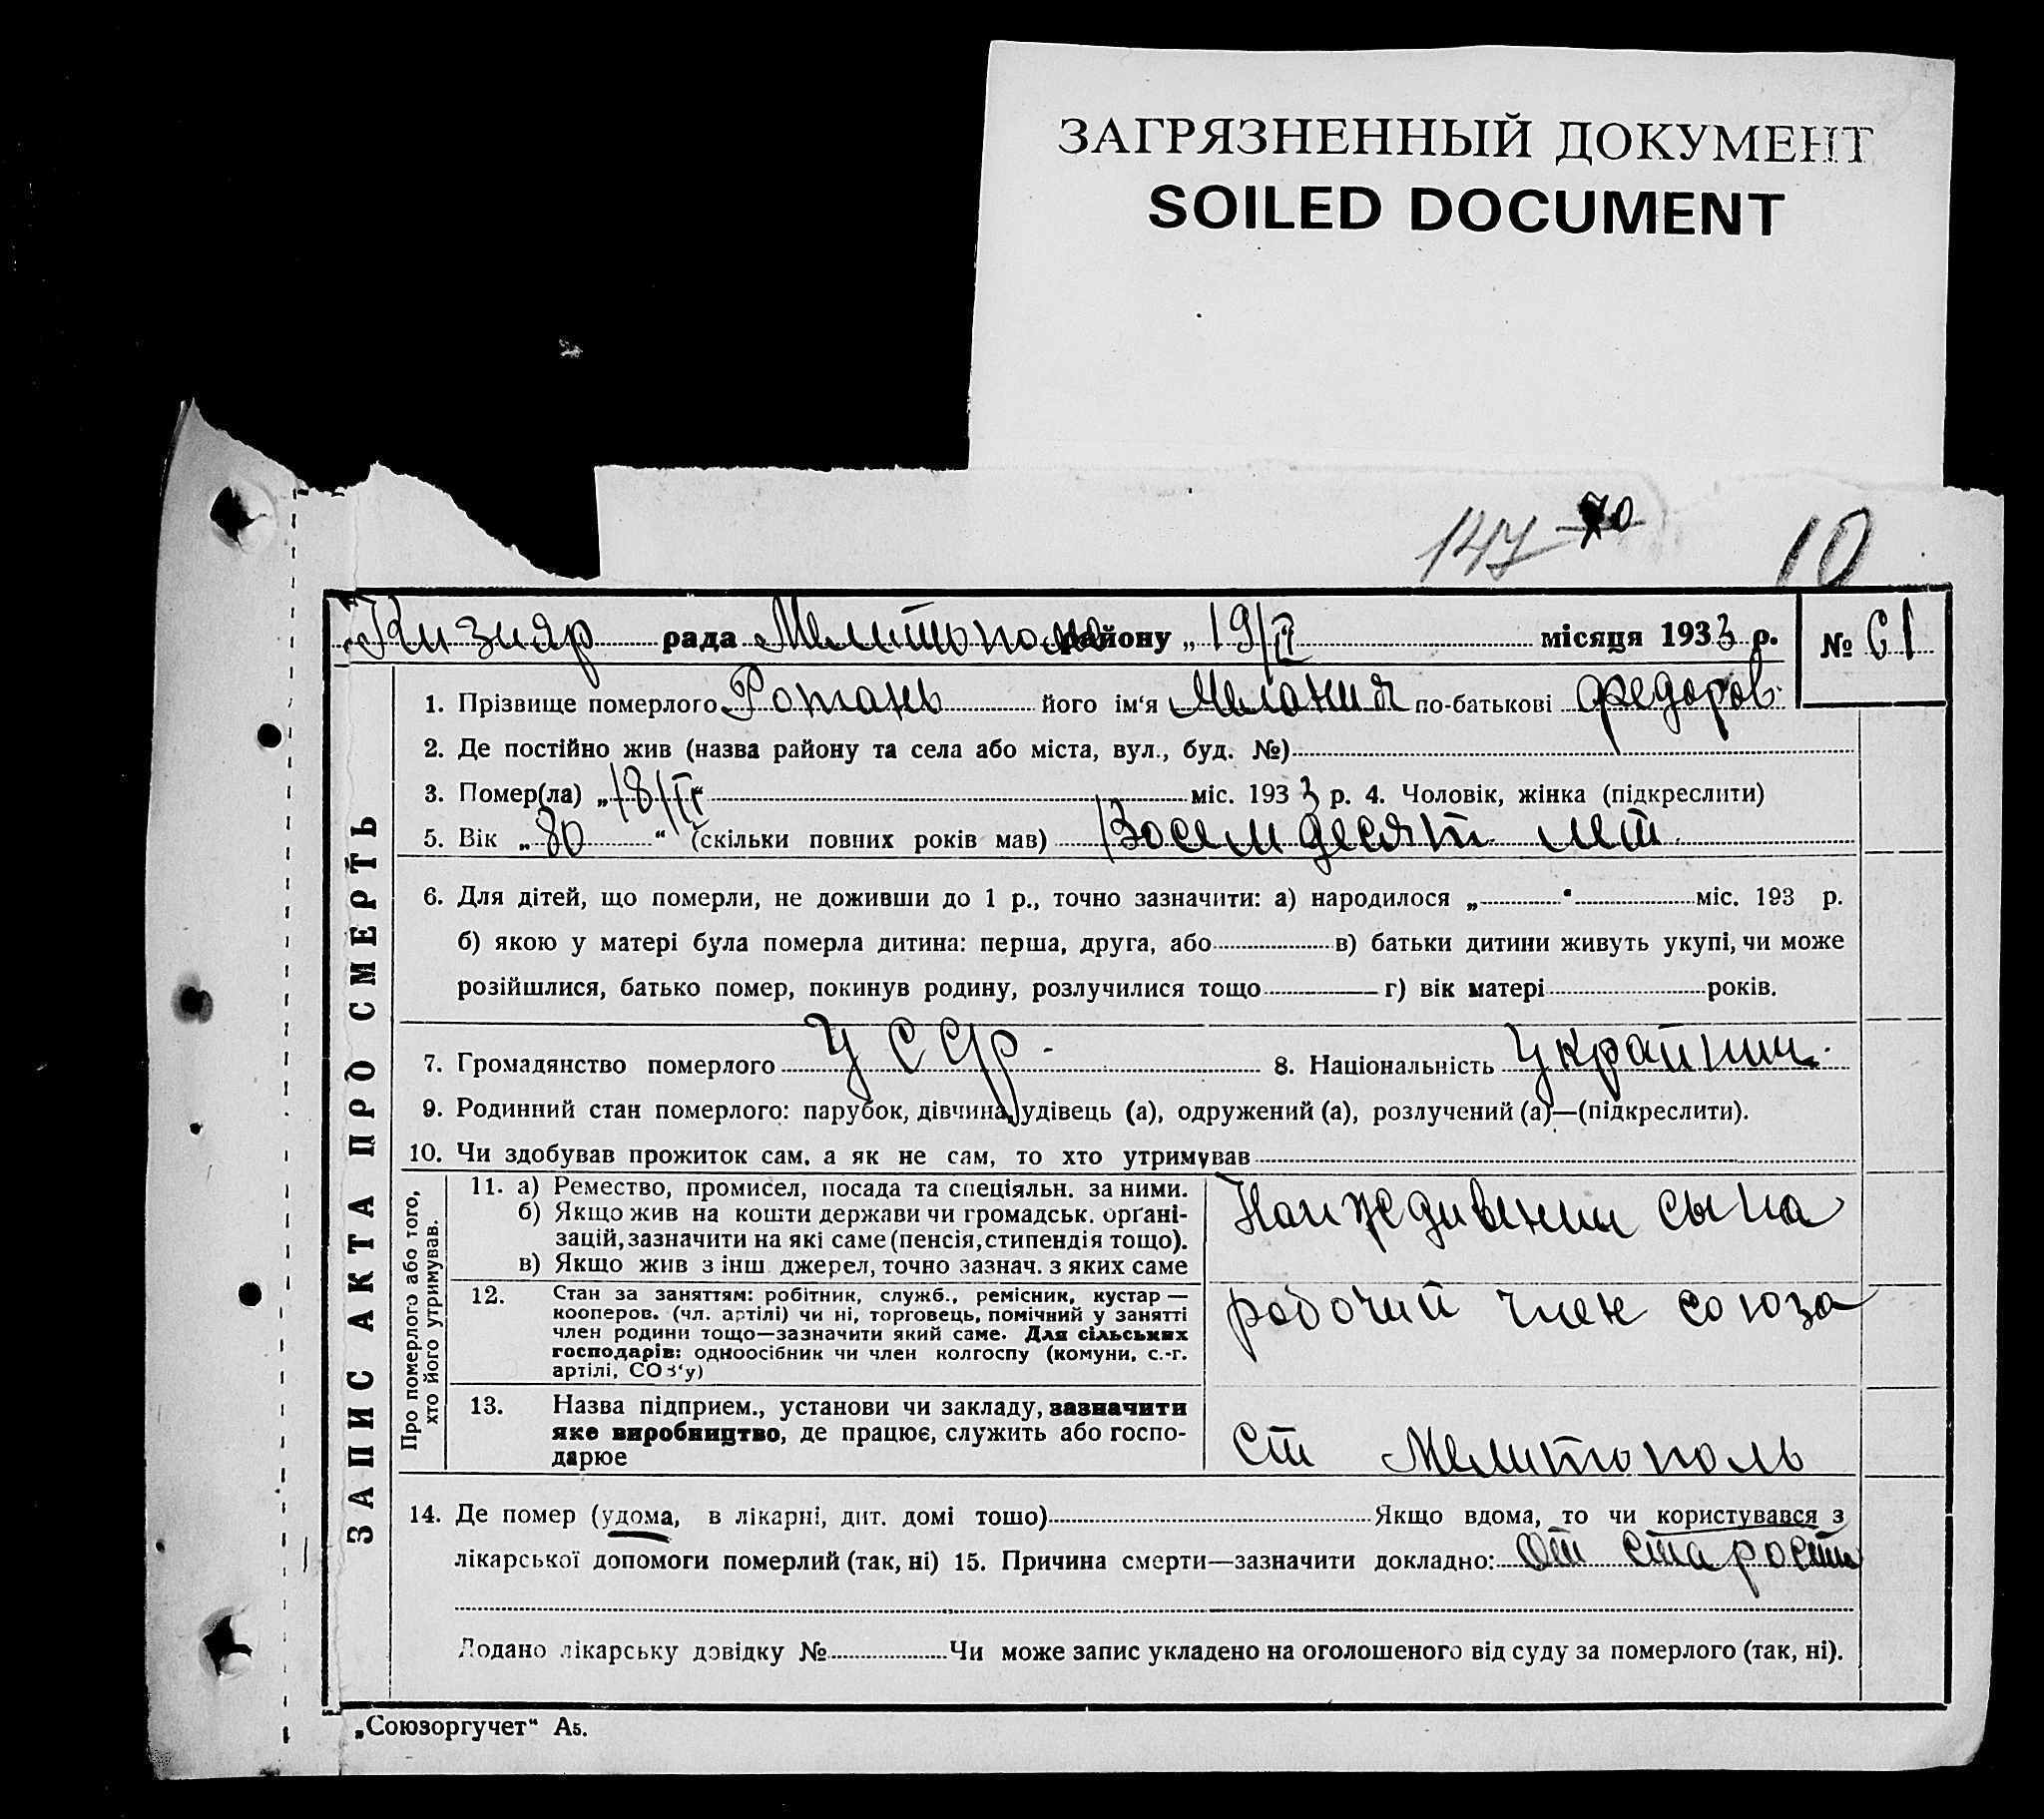 ЗАГРЯЗНЕННЫЙ ДОКУМЕНТ
SOILED DOCUMENT
147 70 10
Кизияр рада Мелитополь району „19/ місяця 1933 р. № 61
ЗАПИС АКТА ПРО СМЕРТЬ
1. Прізвище померлого Ротань його ім'я Мелания по-батькові Федоров.
2. Де постійно жив (назва району та села або міста, вул., буд. №)
3. Помер(ла) „18/IV“ міс. 1933 р. 4. Чоловік, жінка (підкреслити)
5. Вік „80“ (скільки повних років мав) Восемдесят лет.
6. Для дітей, що померли, не доживши до 1 р., точно зазначити: а) народилося „ “ міс. 193 р.
б) якою у матері була померла дитина: перша, друга, або в) батьки дитини живуть укупі, чи може
розійшлися, батько помер, покинув родину, розлучилися тощо г) вік матері років.
7. Громадянство померлого УССР - 8. Національність Украинц.
9. Родинний стан померлого: парубок, дівчина, удівець (а), одружений (а), розлучений (а)—(підкреслити).
10. Чи здобував прожиток сам, а як не сам, то хто утримував
Про померлого або того,
хто його утримував.
11. а) Ремество, промисел, посада та спеціяльн. за ними.
б) Якщо жив на кошти держави чи громадськ. органі-
зацій, зазначити на які саме (пенсія, стипендія тощо).
в) Якщо жив з інш джерел, точно зазнач. з яких саме
На иждивении сына
12. Стан за заняттям: робітник, служб., ремісник, кустар —
кооперов. (чл. артілі) чи ні, торговець, помічний у занятті
член родини тощо—зазначити який саме. Для сільських
господарів: одноосібник чи член колгоспу (комуни, с.-г.
артілі, СОЗ'у)
рабочий член союза
13. Назва підприєм., установи чи закладу, зазначити
яке виробництво, де працює, служить або госпо-
дарює
ст Мелитополь
14. Де помер (удома, в лікарні, дит. домі тощо) Якщо вдома, то чи користувався з
лікарської допомоги померлий (так, ні) 15. Причина смерти—зазначити докладно: От старости
Додано лікарську довідку № Чи може запис укладено на оголошеного від суду за померлого (так, ні).
„Союзоргучет“ А5.